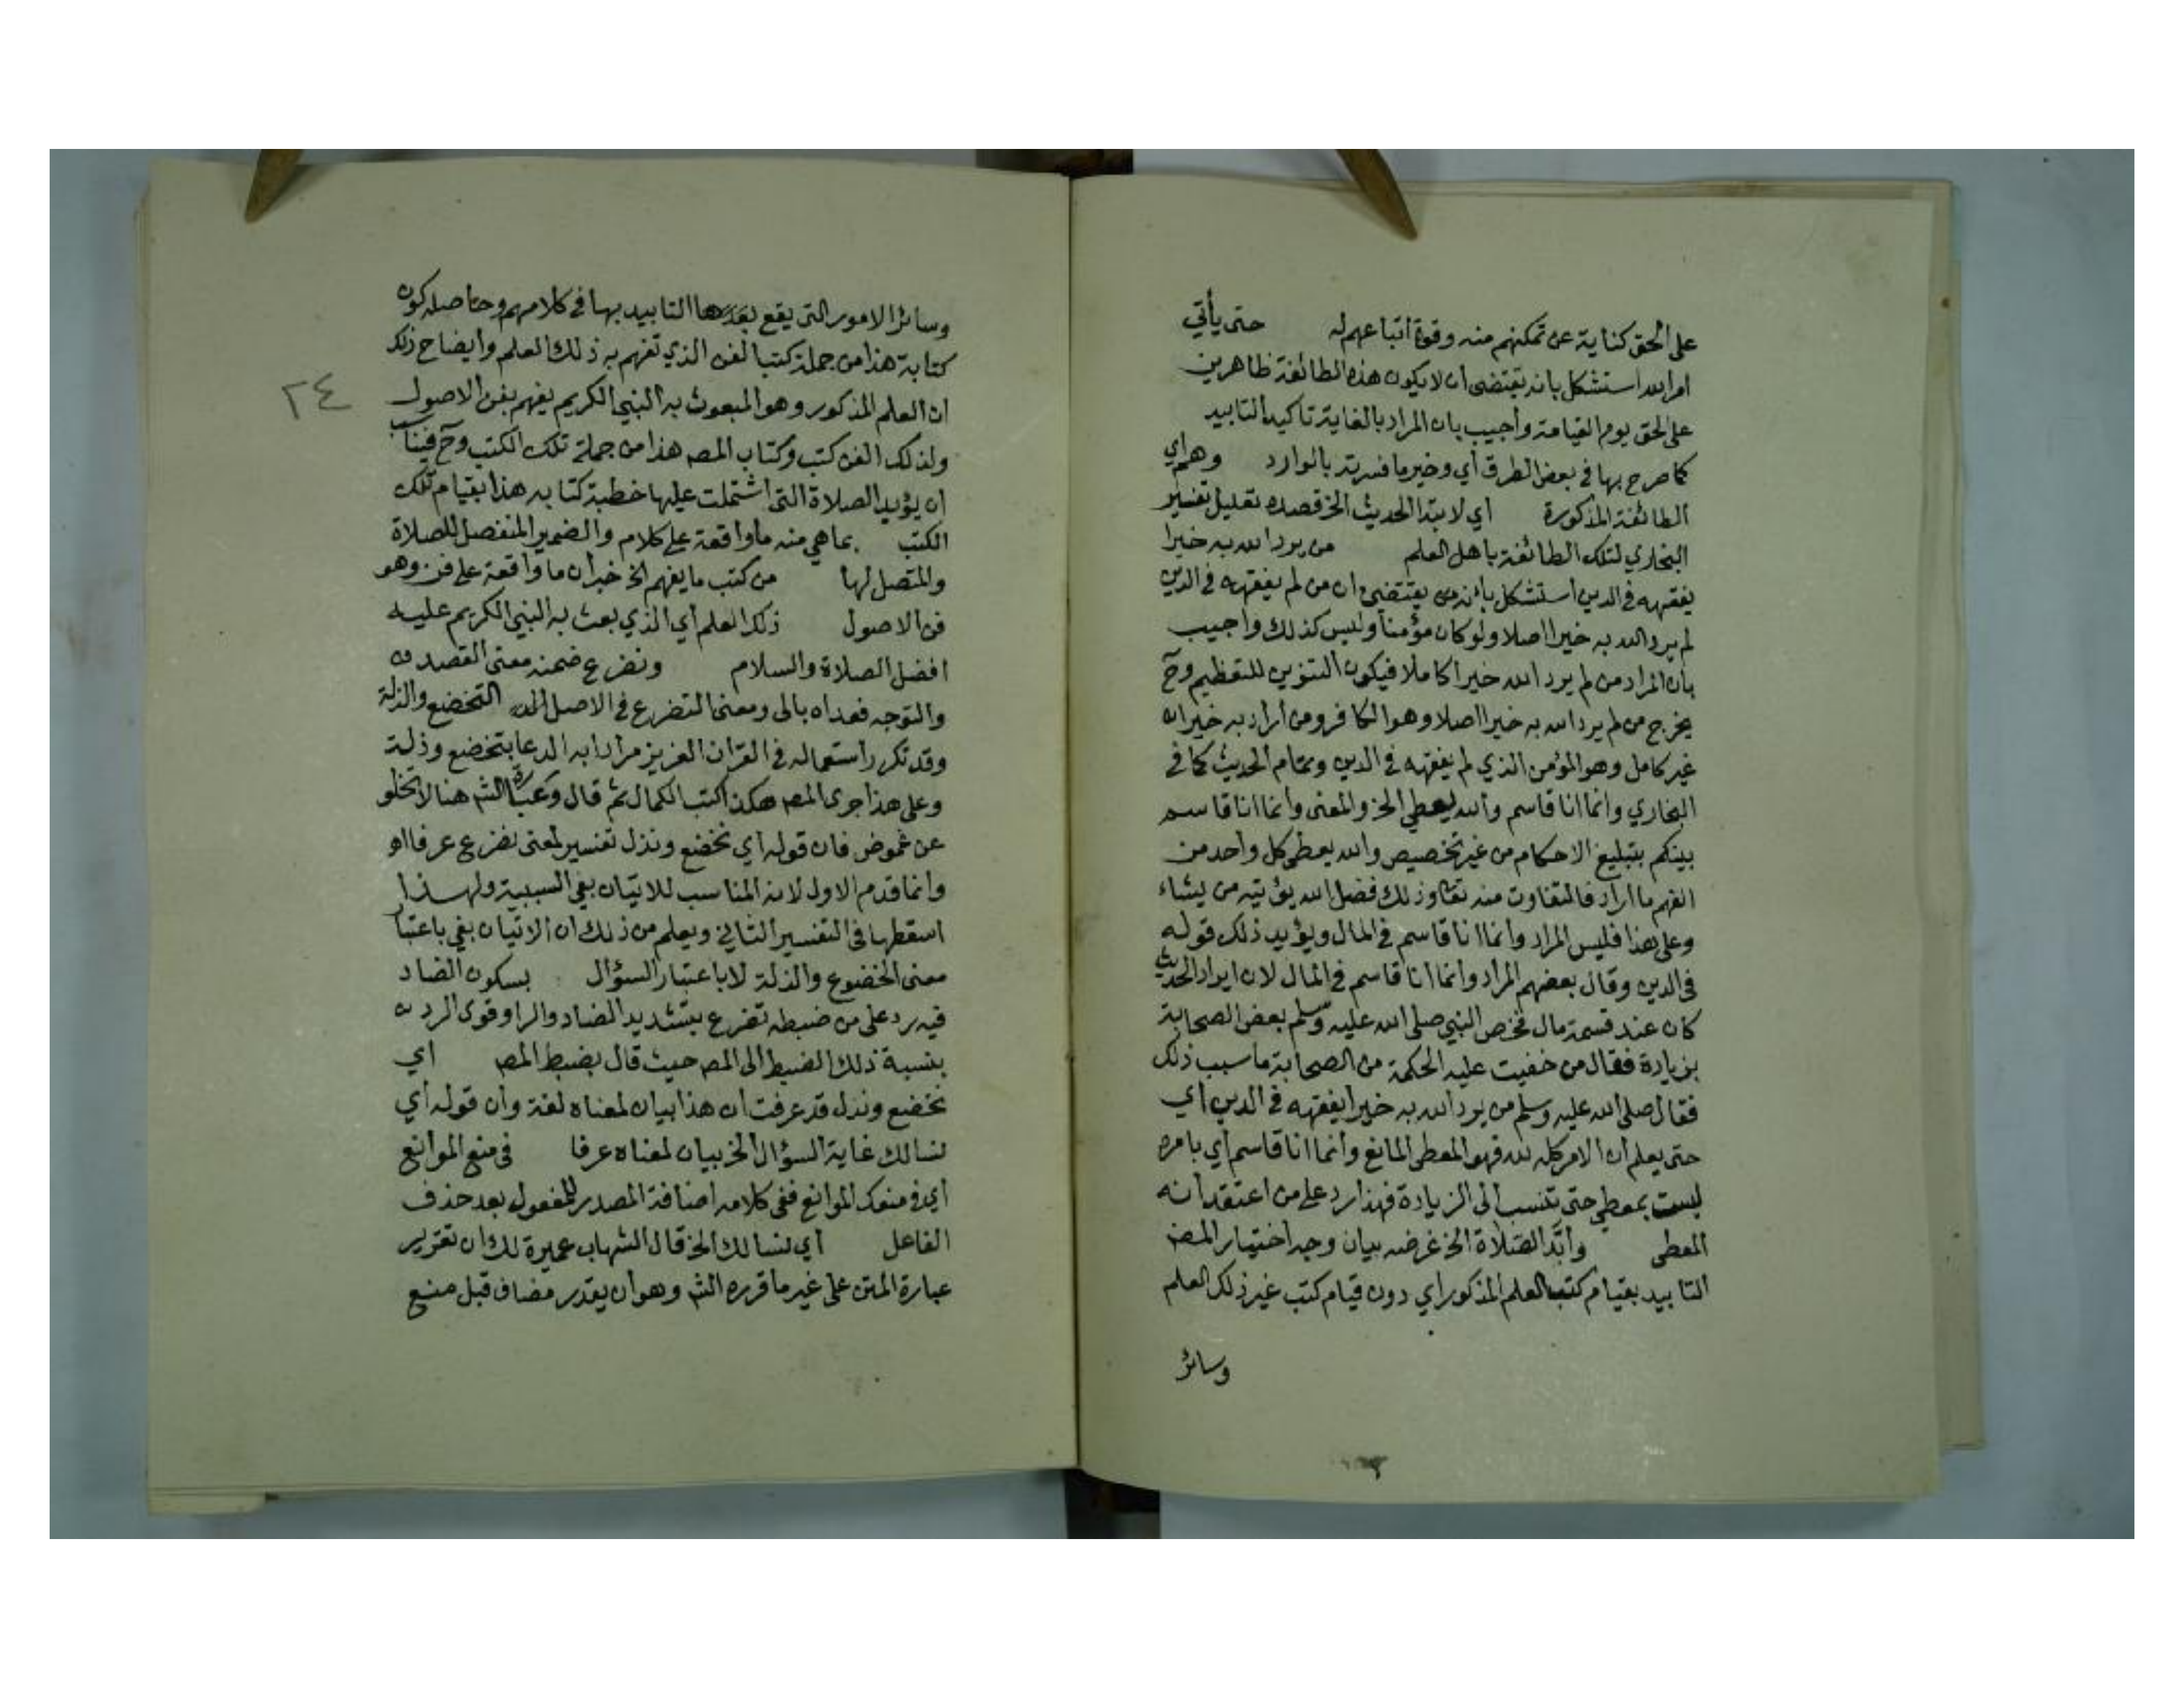 على الحق كناية عن تمكنهم منه وقوة اتباعهم له حتى يأتي
امر الله استشكل بانه يقتضى ان لا يكون هذه الطائفة ظاهرين
على الحق يوم القيامة وأجيب بان المراد بالغاية تاكيد التابيد
كما صرح بها في بعض الطرق أي وخير ما فسرته بالوارد وهم أي
الطائفة المذكورة أي لابتدا الحديث الخ قصده تعليل تفسير
البخاري لتلك الطائفة باهل العلم من يرد الله به خيرا
يفقهه في الدين استشكل بانه يقتضي ان من لم يفقهه في الدين
لم يرد الله به خيرا اصلا ولو كان مؤمنا وليس كذلك وأجيب
بان المراد من لم يرد الله خيرا كاملا فيكون التنوين للتعظيم وح
يخرج من لم يرد الله به خيرا اصلا وهو الكافر ومن أراد به خيرا
غير كامل وهو المؤمن الذي لم يفقهه في الدين وتمام الحديث كما في
البخاري وانما انا قاسم والله يعطي الخ والمعنى وانما انا قاسم
بينكم بتبليغ الاحكام من غير تخصيص والله يعطى كل واحد من
الفهم ما اراد فالتفاوت منه تعا وذلك فضل الله يؤتيه من يشاء
وعلى هذا فليس المراد وانما انا قاسم في المال ويؤيد ذلك قوله
في الدين وقال بعضهم المراد وانما انا قاسم في المال لان ايراد الحديث
كان عند قسمة مال فخص النبي صلى الله عليه وسلم بعض الصحابة
بزيادة فقال من خفيت عليه الحكمة من الصحابة ما سبب ذلك
فقال صلى الله عليه وسلم من يرد الله به خيرا يفقهه في الدين أي
حتى يعلم ان الامر كله لله فهو المعطى المانع وانما انا قاسم أي بامره
ليست بمعطي حتى تنسب الى الزيادة فهذا رد على من اعتقد أنه
المعطى وأبد الصلاة الخ غرضه بيان وجه اختيار المصنف
التابيد بقيام كتب العلم المذكور أي دون قيام كتب غير ذلك العلم
وسائر
وسائر الامور التى يقع بعدها التابيد بها في كلامهم وحاصله كون
كتابة هذا من جملة كتب الفن الذي تفهم به ذلك العلم وايضاح ذلك
ان العلم المذكور وهو المبعوث به النبي الكريم يفهم بفن الاصول
ولذلك الفن كتب وكتاب المصـ هذا من جملة تلك الكتب وح فيناسب
ان يؤيد الصلاة التى اشتملت عليها خطبة كتابه هذا بقيام تلك
الكتب بما هي منه ما واقعة على كلام والضمير المنفصل للصلاة
والمتصل لها من كتب ما يفهم الخ خبر ان ما واقعة على فن وهو
فن الاصول ذلك العلم أي الذي بعث به النبي الكريم عليه
افضل الصلاة والسلام ونضرع ضمنه معنى القصد
والتوجه فعداه بالى ومعنى التضرع في الاصل التخضع والذلة
وقد تكرر استعماله في القرآن العزيز مرادا به الدعا بتخضع وذلة
وعلى هذا جرى المصـ هكذا كتب الكمال ثم قال وعبارة الشـ هنا لا تخلو
عن غموض فان قوله أي نخضع ونذل تفسير لمعنى نضرع عرفا اهـ
وانما قدم الاول لانه المناسب للاتيان بفي السببية ولهذا
اسقطها في التفسير الثاني ويعلم من ذلك ان الاتيان بفي باعتبار
معنى الخضوع والذلة لا باعتبار السؤال بسكون الضاد
فيه رد على من ضبطه تضرع بتشديد الضاد والرا وقوى الرد
بنسبة ذلك الضبط الى المصـ حيث قال بضبط المصـ أي
نخضع ونذل قد عرفت ان هذا بيان لمعناه لغة وان قوله أي
نسالك غاية السؤال الخ بيان لمعناه عرفا في منع الموانع
أي في منعك الموانع ففي كلامه اضافة المصدر للمفعول بعد حذف
الفاعل أي نسالك الخ قال الشهاب عميرة لك ان تقرير
عبارة المتن على غير ما قرره الشـ وهو ان يقدر مضاف قبل منع
٢٤